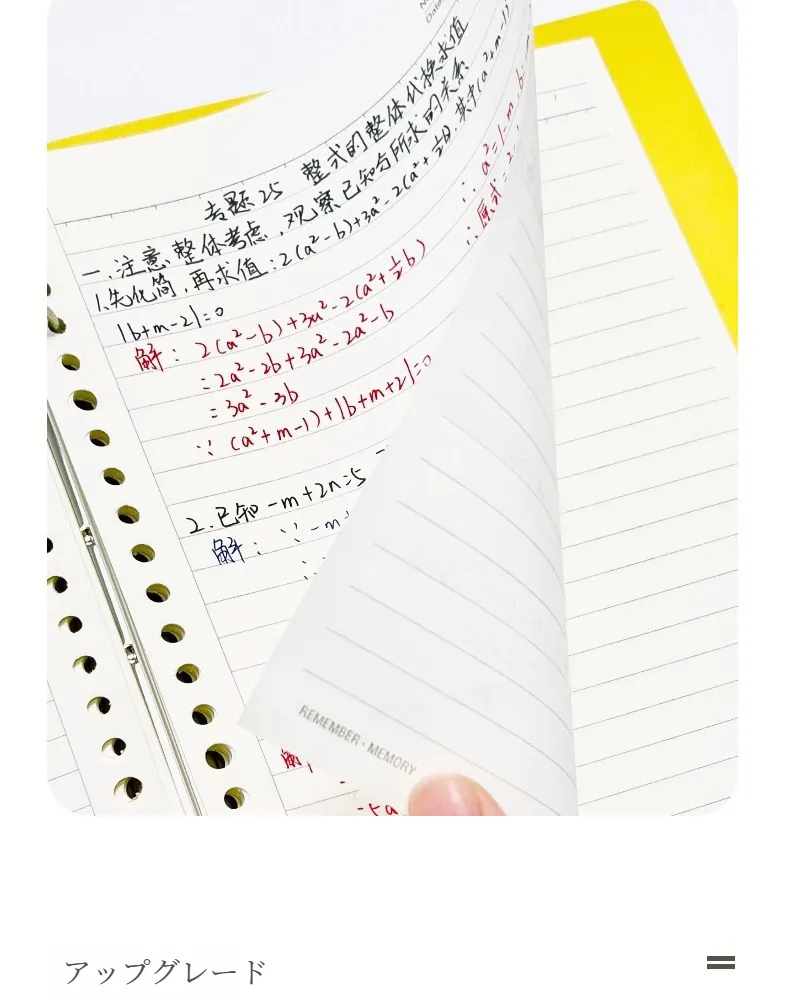 Date
专题25 整式的整体代换求值
一.注意整体考虑,观察已知与所求的关系
1.先化简,再求值:2(a²-b)+3a²-2(a²+½b).其中(a²+m-1)
|b+m-2|=0
解: 2(a²-b)+3a²-2(a²+½b)
=2a²-2b+3a²-2a²-b
=3a²-3b
∵ (a²+m-1)+|b+m+2|=0
∴ a²=1-m b=
∴原式=
2.已知-m+2n=5
解: ∵-m+
∴
解
-5a
REMEMBER·MEMORY
アップグレード